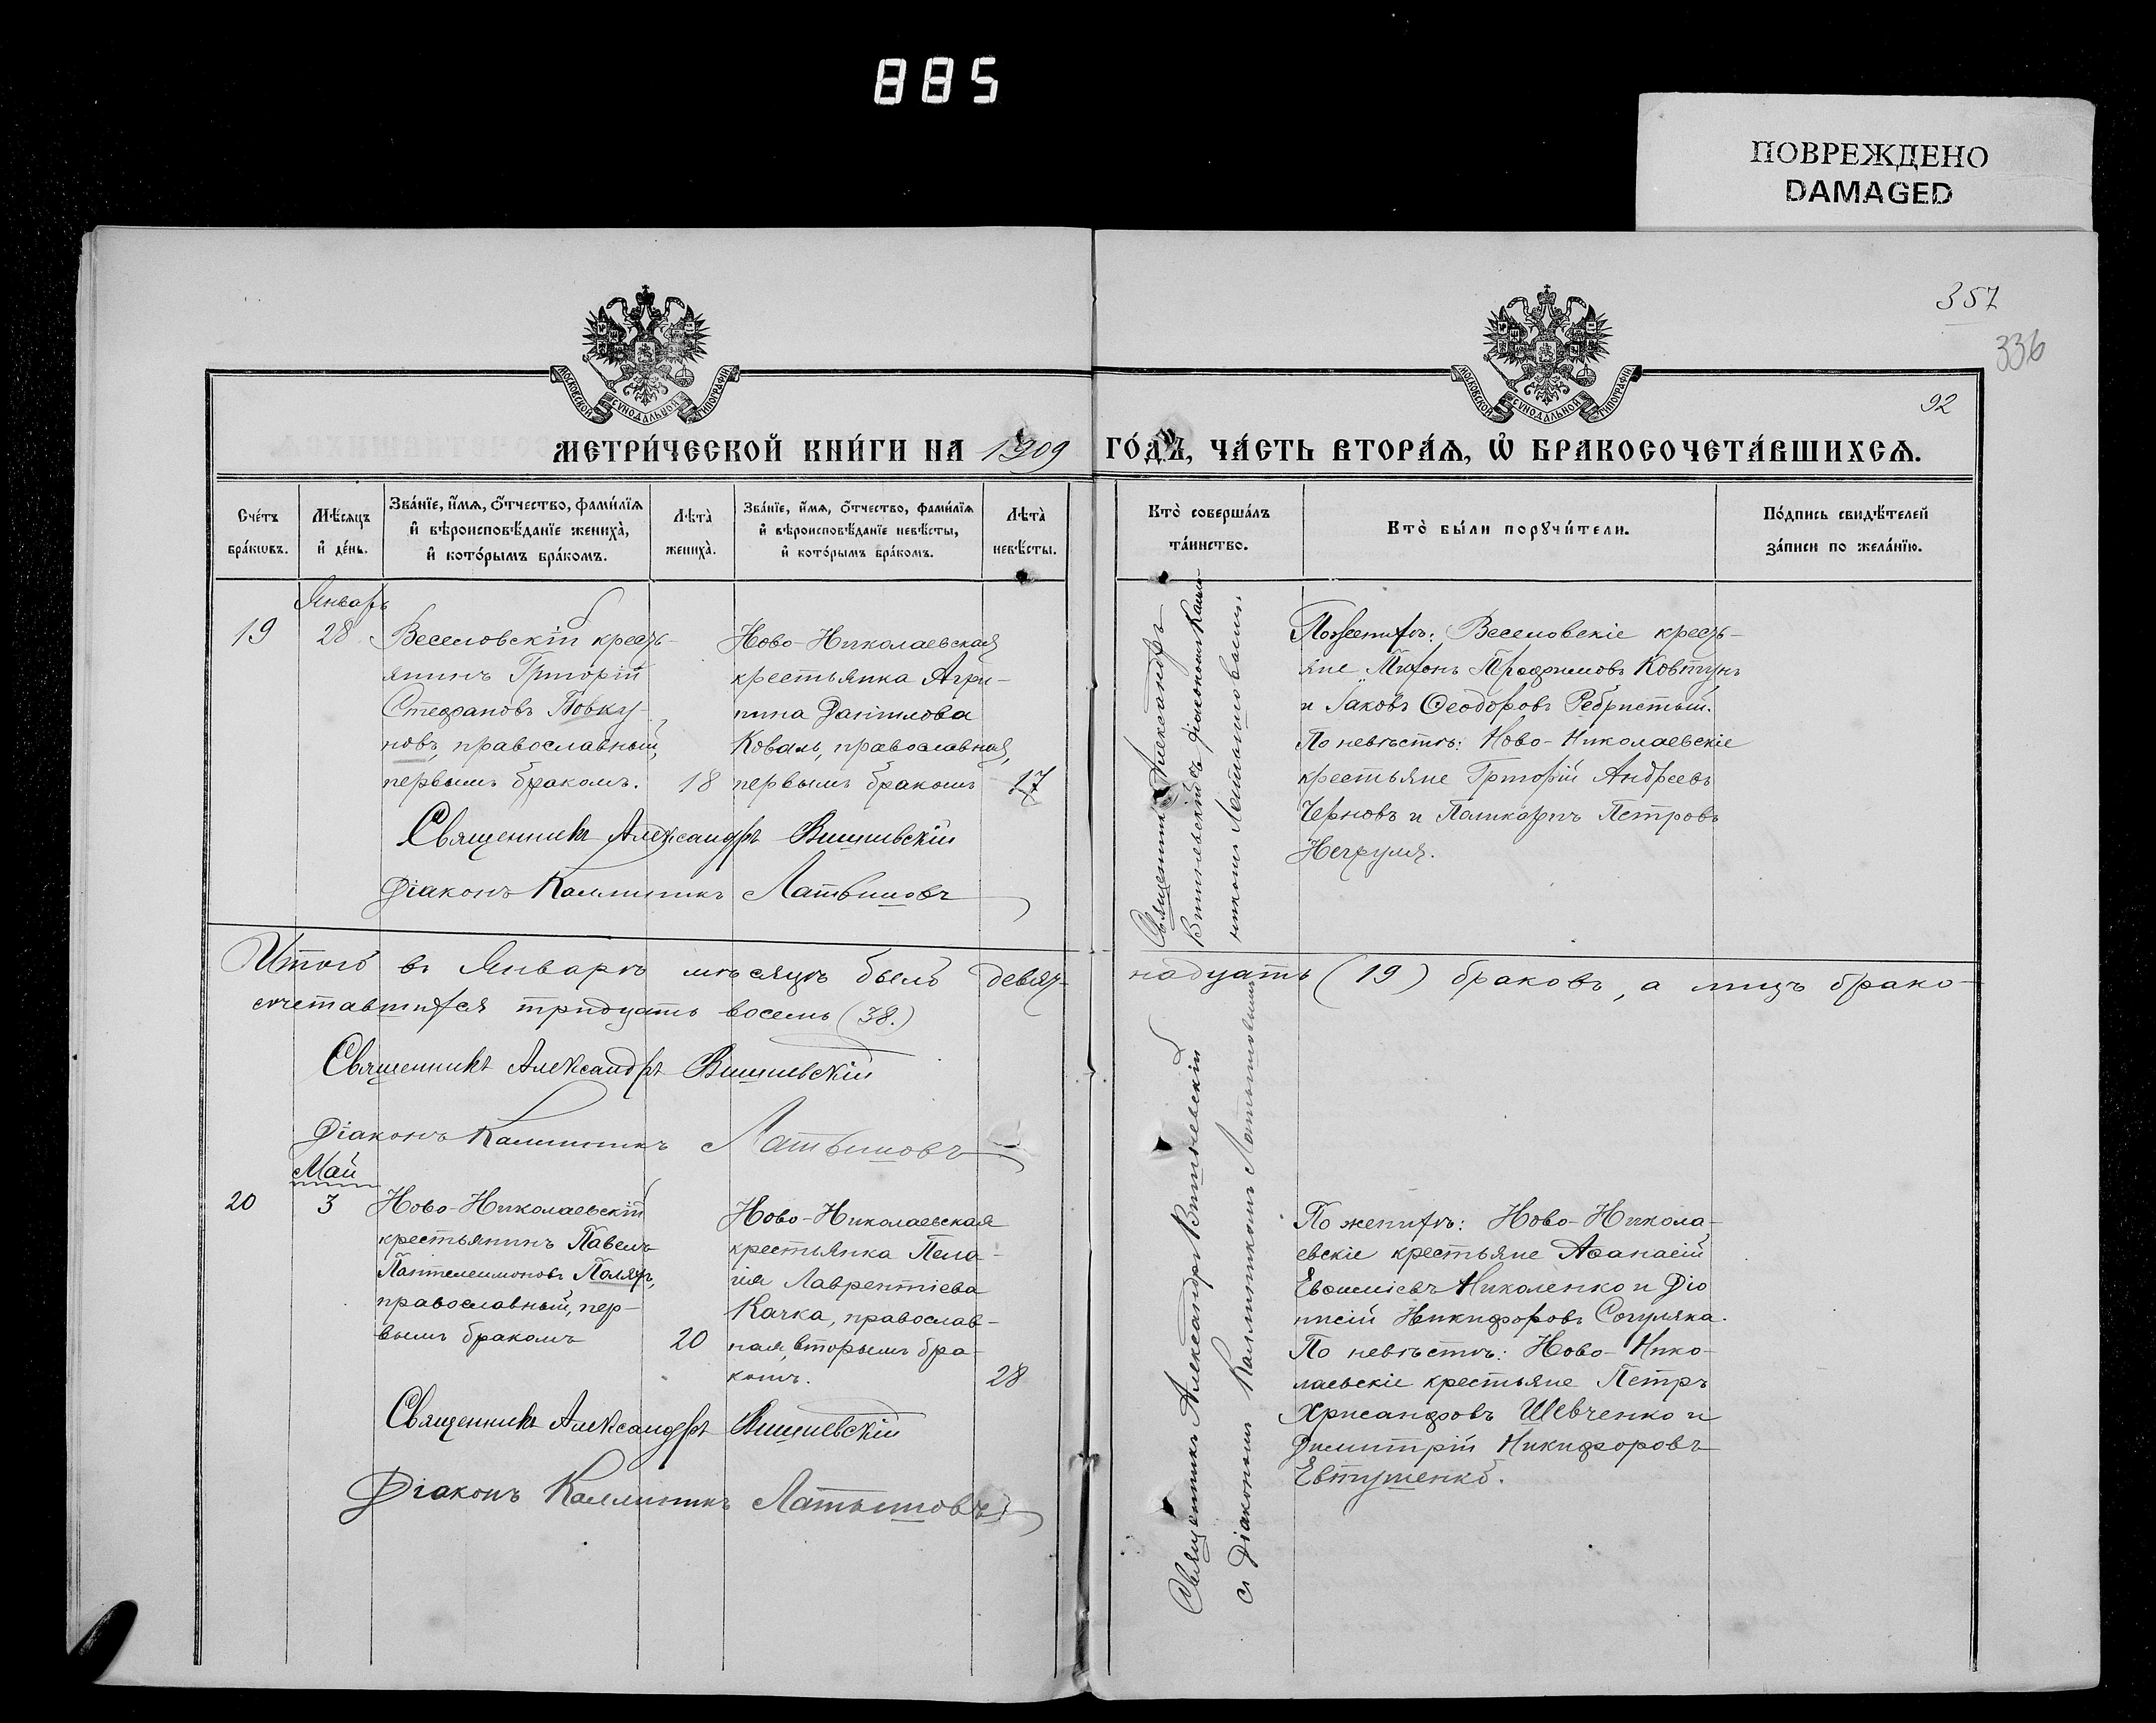 885
ПОВРЕЖДЕНО
DAMAGED
357
336
92
МОСКОВСКОЙ СѴНОДАЛЬНОЙ ТИПОГРАФІИ
МОСКОВСКОЙ СѴНОДАЛЬНОЙ ТИПОГРАФІИ
МЕТРИ́ЧЕСКОЙ КНИ́ГИ НА 1909 ГО́ДЪ, ЧА́СТЬ ВТОРА́Ѧ, Ѡ҆ БРАКОСОЧЕТА́ВШИХСѦ.
Сче́тъ
бра́кѡвъ.
Мѣ́сяцъ
и҆ де́нь.
Зва́нїе, и҆́мѧ, ѻ҆́тчество, фами́лїѧ
и҆ вѣроисповѣ́данїе жениха̀,
и҆ кото́рымъ бра́комъ.
Лѣта̀
жениха̀.
Зва́нїе, и҆́мѧ, ѻ҆́тчество, фами́лїѧ
и҆ вѣроисповѣ́данїе невѣ́сты,
и҆ кото́рымъ бра́комъ.
Лѣта̀
невѣ́сты.
Кто̀ соверша́лъ
та́инство.
Кто̀ бы́ли порꙋчи́тели.
По́дпись свидѣ́телей
за́писи по жела́нїю.
Январь
19
28
Веселовскій кресть-
янинъ Григорій
Стефановъ Ковку-
новъ, православный,
первымъ бракомъ.
18
Ново-Николаевская
крестьянка Агри-
пина Даніилова
Коваль, православная,
первымъ бракомъ
17
Священникъ Александръ
Вишневскій съ діакономъ Калли-
никомъ Латышовымъ.
По женихѣ: Веселовскіе кресть-
яне Миронъ Трофимовъ Ковтунъ
и Іаковъ Ѳеодоровъ Ребристый.
По невѣстѣ: Ново-Николаевскіе
крестьяне Григорій Андреевъ
Черновъ и Поликарпъ Петровъ
Негруля.
Священникъ Александръ Вишневскій
Діаконъ Каллиникъ Латышовъ
Итого въ Январѣ мѣсяцѣ было девят-
надцать (19) браковъ, а лицъ брако-
сочетавшихся тридцать восемь (38.)
Священникъ Александръ Вишневскій
Діаконъ Каллиникъ Латышовъ
Май
20
3
Ново-Николаевскій
крестьянинъ Павелъ
Пантелеимоновъ Поляр,
православный, пер-
вымъ бракомъ
20
Ново-Николаевская
крестьянка Пела-
гія Лаврентіева
Качка, православ-
ная, вторымъ бра-
комъ.
28
Священникъ Александръ Вишневскій
съ Діакономъ Каллиникомъ Латышовымъ
По женихѣ: Ново-Никола-
евскіе крестьяне Аѳанасій
Евѳиміевъ Николенко и Діо
нисій Никифоровъ Согуляка.
По невѣстѣ: Ново-Нико-
лаевскіе крестьяне Петръ
Хрисанфовъ Шевченко и
Димитрій Никифоровъ
Евтушенко.
Священникъ Александръ Вишневскій
Діаконъ Каллиникъ Латышовъ